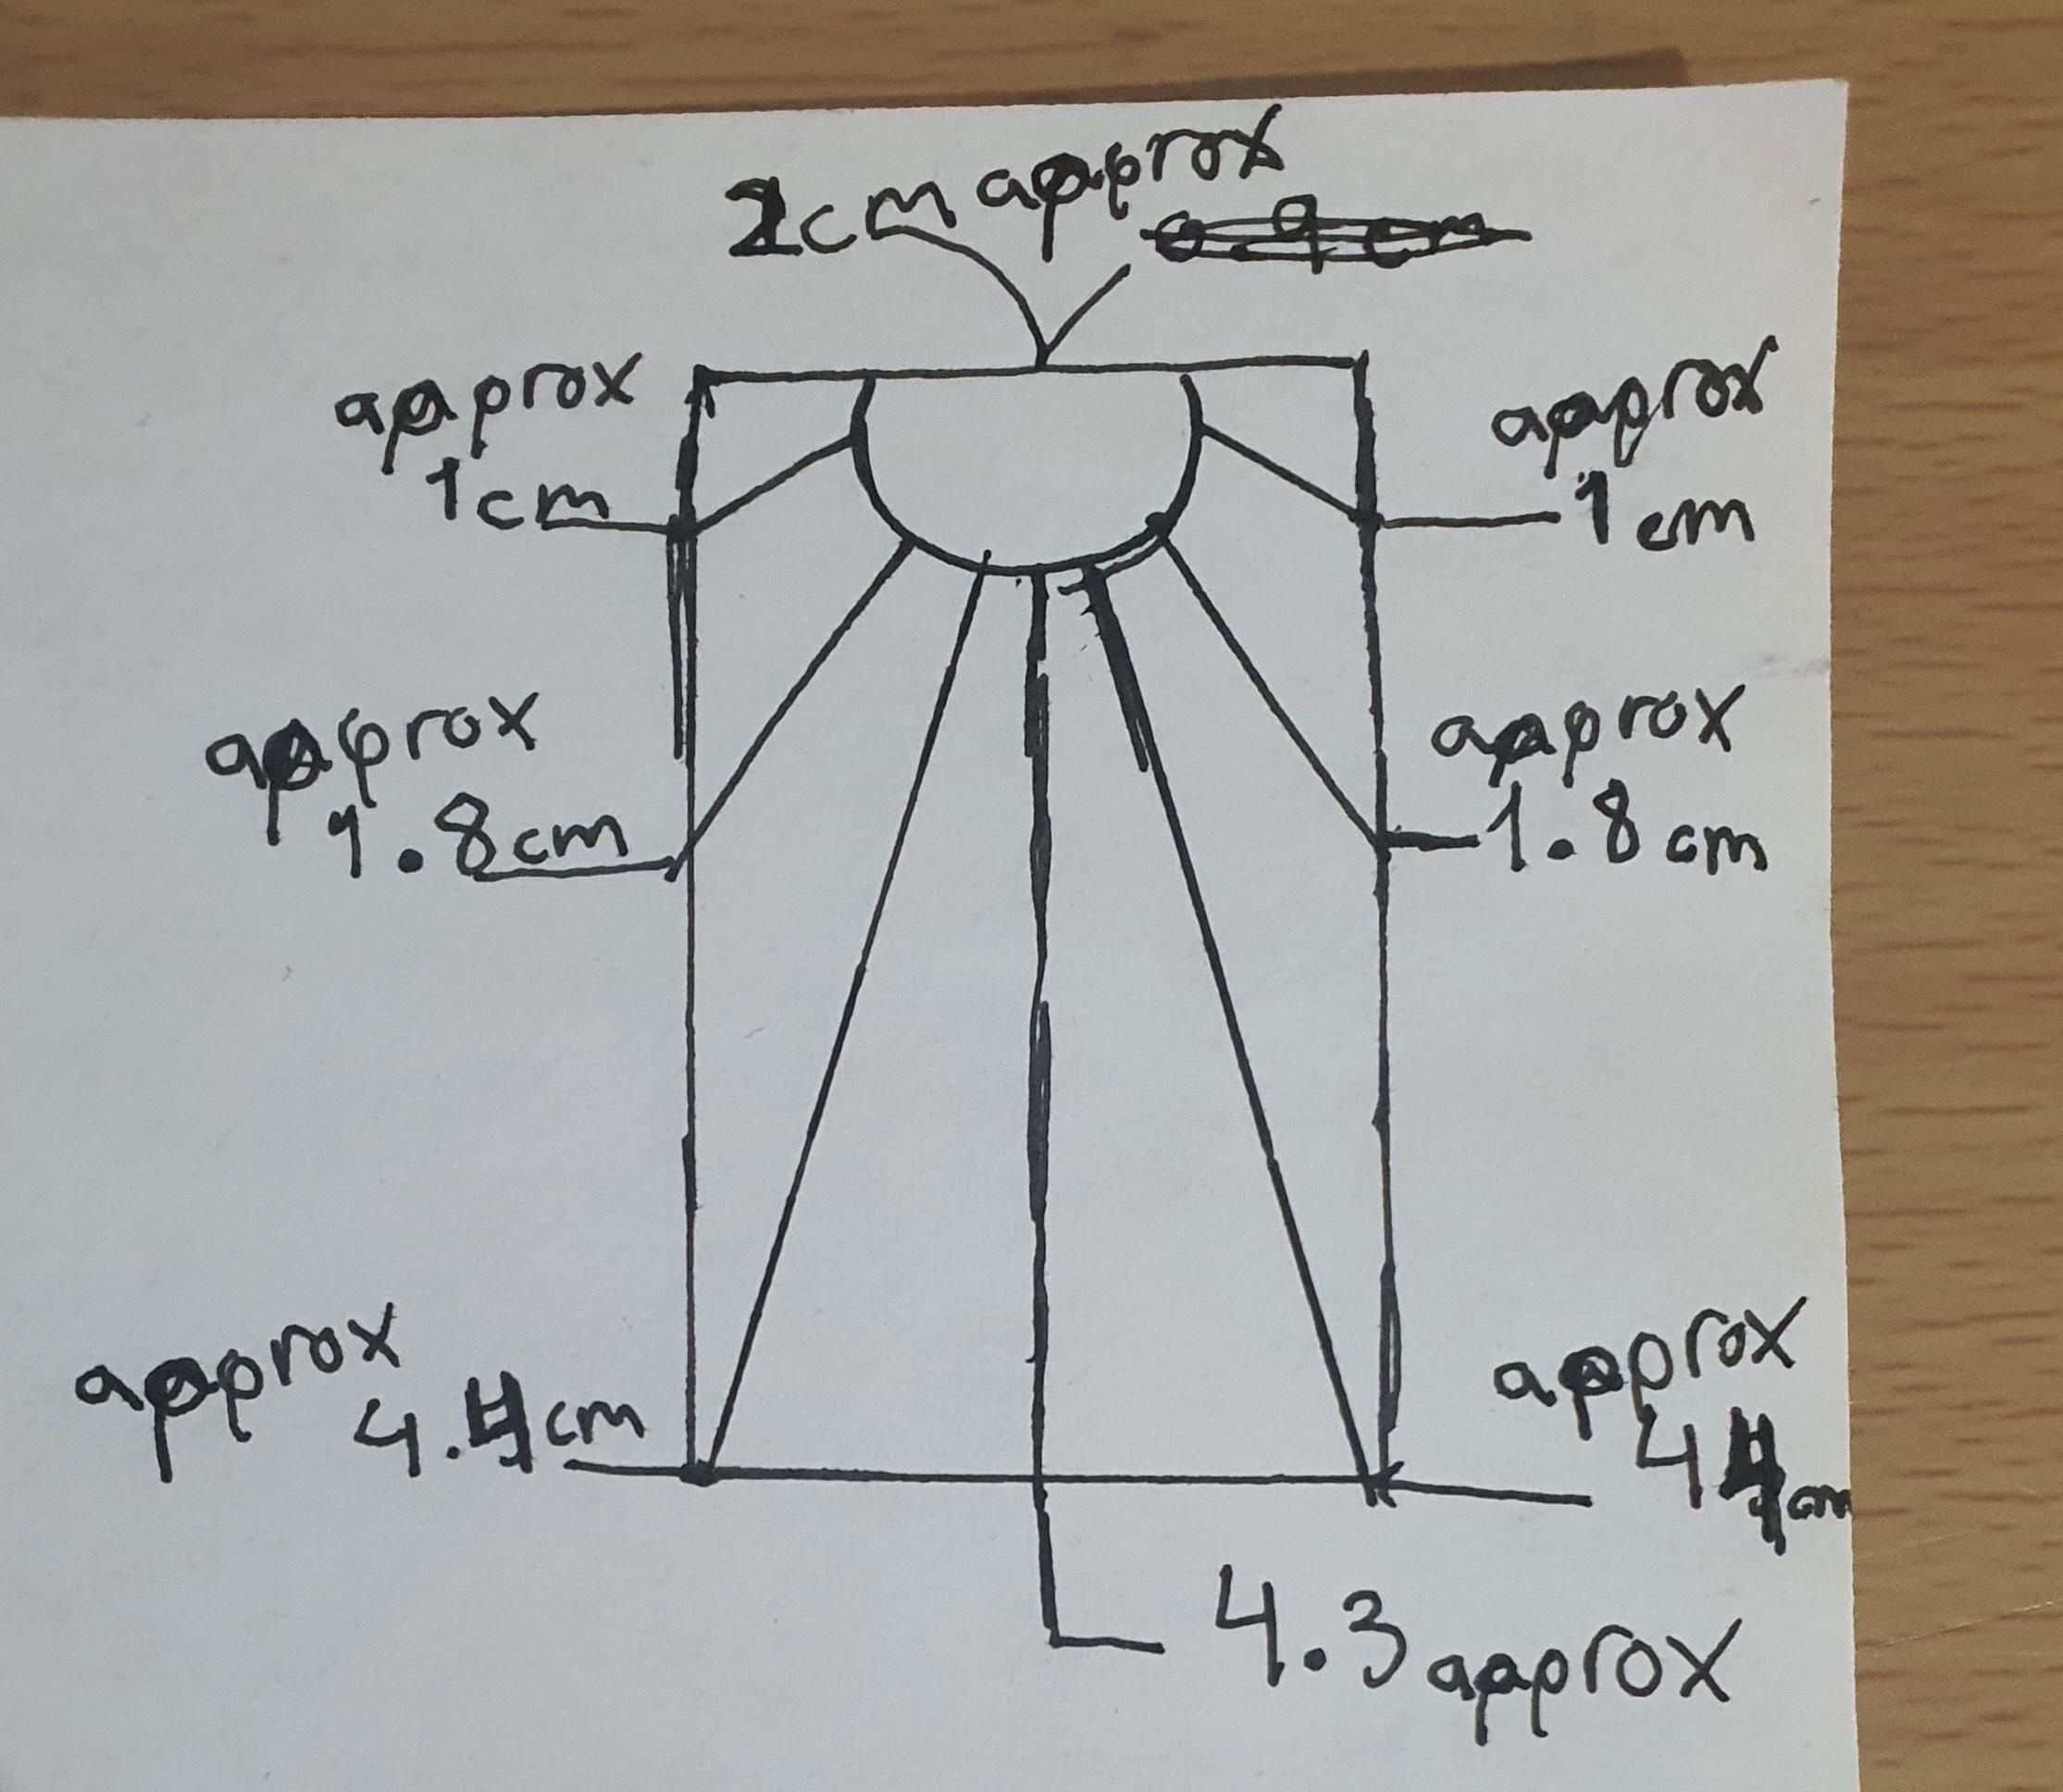 2cm approx
approx
1cm
approx
1cm
approx
1.8cm
approx
1.8cm
approx
4.4cm
approx
4 4cm
4.3 approx